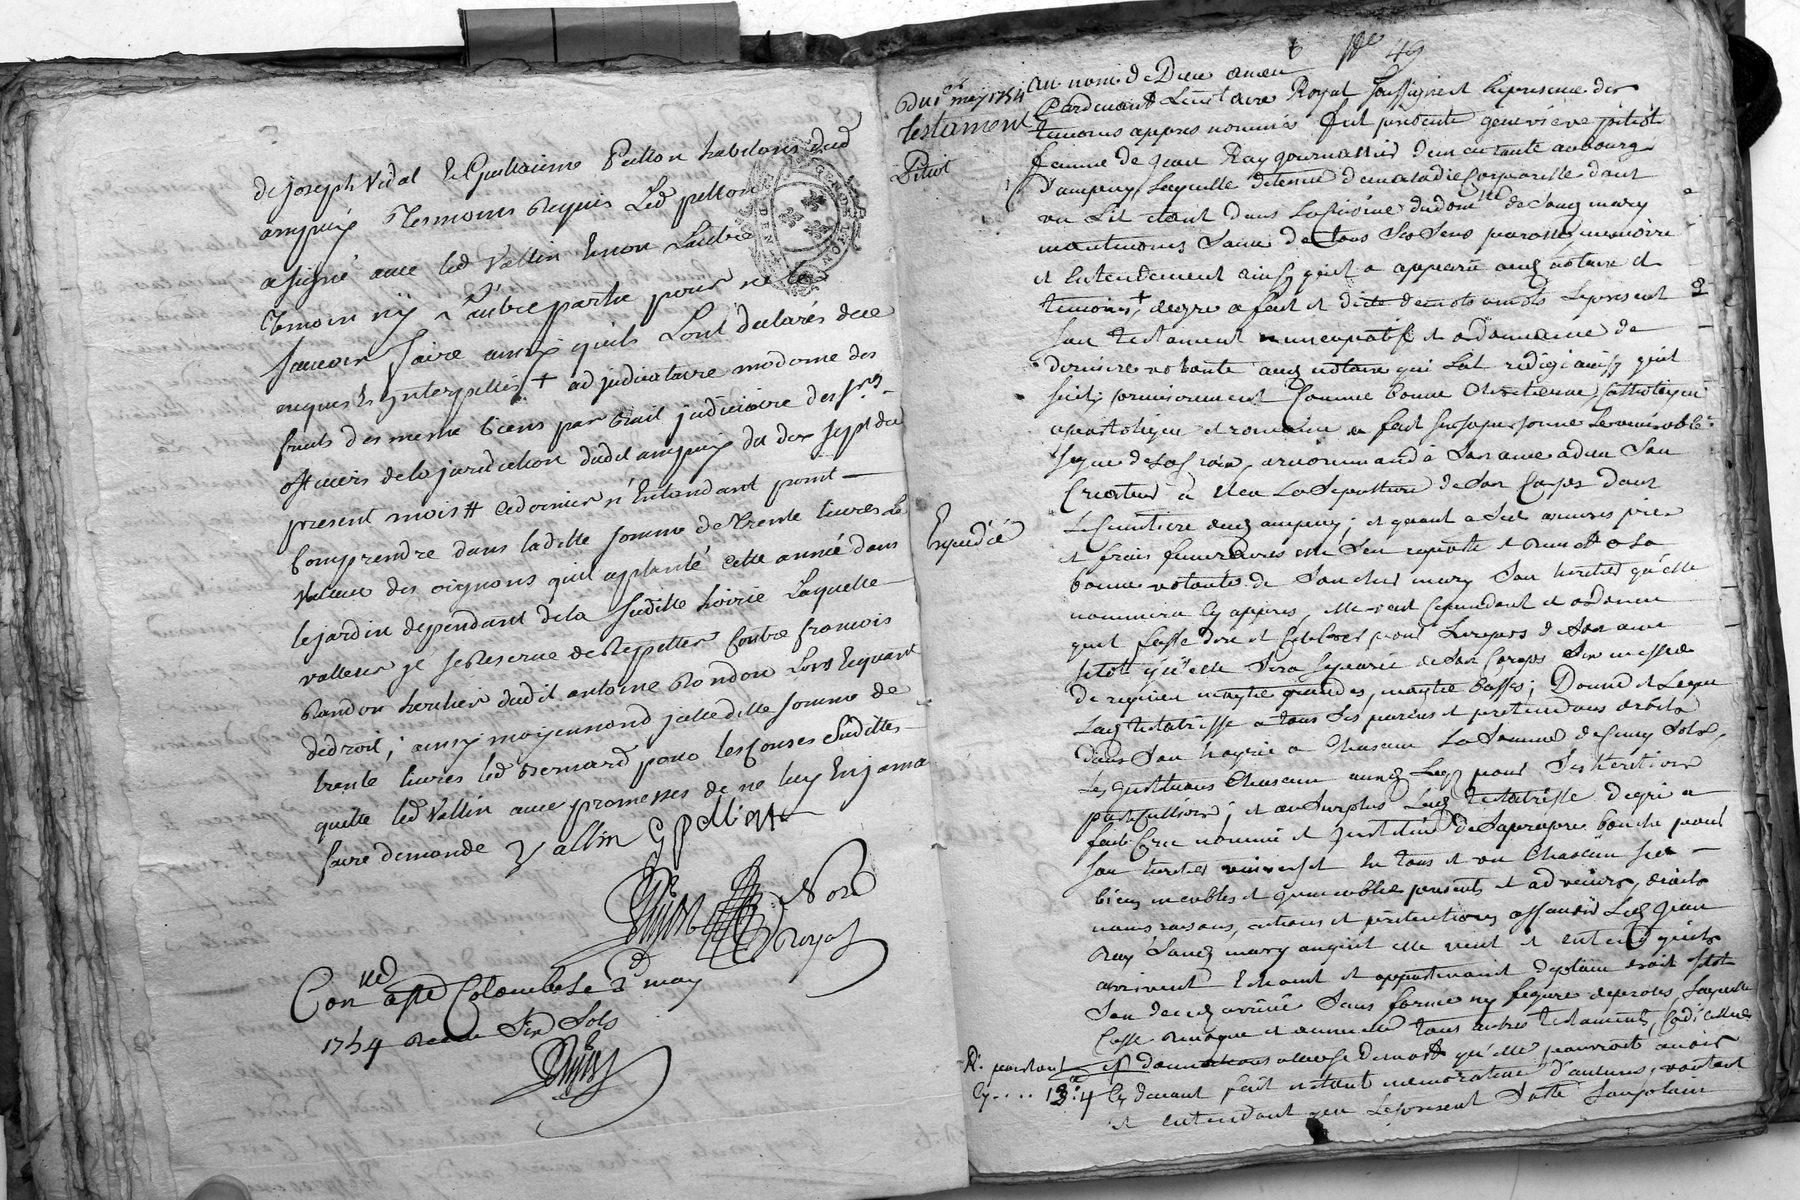 de Joseph Vidal et Guillaume Pellon habitans dud
ampuy tesmoins requis led pellon
a signé avec led Vallin et non l'autre
temoin ny l'autre partie pour ne le
sçavoir faire ainsy quils l'ont declarés de ce
enquis et interpellés + adjudicataire moderne des
fruits desmesme biens par bail judiciaire des srs
officiers de la juridiction dudit ampuy du dix sept du
present mois # ce dernier n'entendant point
comprendre dans laditte somme de trente livres la
valeur des oignons quil a planté cette année dans
le jardin dependant de la suditte hoirie laquelle
valleur il se reserve de repetter contre francois
Rondon heritier dudit antoine Rondon
de droit; ainsy moyennand jcelle ditte somme de
trente livres led Bernard pour les causes suditte
quitte led Vallin avec promesses de ne luy en jama
faire demande Vallin G pellon
No re
Royal
Con lle a Ste Colombe le 2 may
1754 Reçu Six Sols
49
Du 1er may 1754
testament
Pitiot
Expediée
au nom de Dieu amen
Pardevant le notaire Royal soussigné et en presence des
temoins appres nommés fut presente genevieve pitiot
femme de Jean Ray journallier demeurante au bourg
d'ampuy laquelle detenue de maladie corporelle dans
un lit etant dans la cuisine du domlle de sond mary
neantmoins saine de tous ses sens parolle memoire
et entendement ainsy quil a apparu aud notaire et
temoins, + degre a fait et dicté de mots a mots le present
son testament nuncupatif et ordonnance de
derniere volonté aud notaire qui l'at redigé ainsy quil
suit; premierement comme bonne chretienne catholique
apostolique et romaine a fait sur sa personne le venerable
signe de la croix, a recommandé son ame a dieu son
createur a eleu la sepulture de son corps dans
le cimetiere dud ampuy; et quant a ses œuvres pies
et frais funeraires elle s'en raporte et remet a la
bonne volonté de son cher mary son heritier qu'elle
nommera cy appres, elle veut cependant et ordonne
quil fasse dire et celebrer pour le repos de son ame
sitot qu'elle sera separée de son corps six messes
de requiem moytié grandes, moytié basses; Donne et legue
lad testatrisse a tous ses parens et pretendans droits
dans son hoyrie a chascun la somme de cinq sols,
les instituans chascun aud leg pour ses heritiers
particulliers; et au surplus lad testatrisse degré a
fait cree nommé et institué de sa propre bouche pour
son heritier universel en tous et un chascun ses
biens meubles et immeubles presents et advenirs, droits
noms raisons, actions et pretentions assavoir led Jean
Ray sond mary auquel elle veut et entend quils
arrivent echoient et appartiennent de plain droit sitot
son deces arrivé sans forme ny figure de proces, laquelle
casse revoque et annulle tous autres testaments, codicilles
et donnations a cause de mort qu'elle pourroit avoir
cy devant fait n'etant memorative d'aucuns, voulant
et entendant que le present sorte son plain
R. pendant
Cy.... 13:4